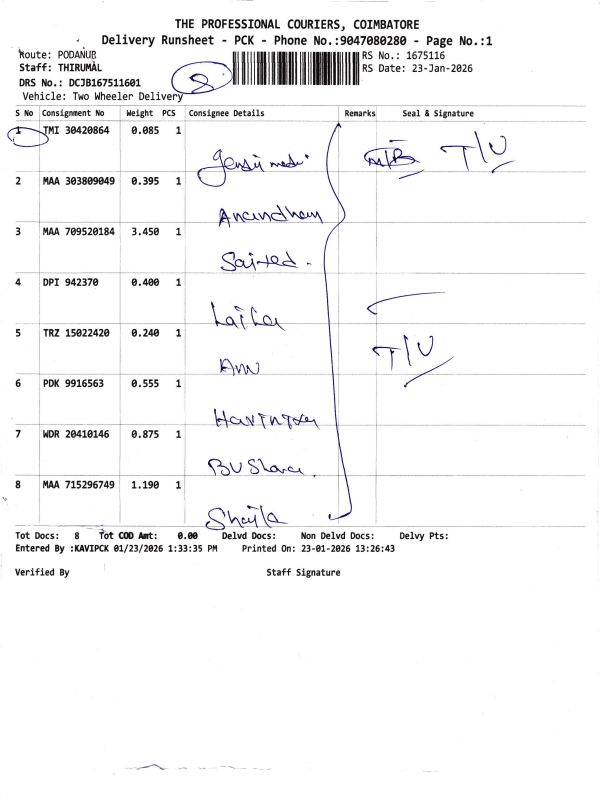 THE PROFESSIONAL COURIERS, COIMBATORE
Delivery Runsheet - PCK - Phone No.:9047080280 - Page No.:1
Route: PODANUR
RS No.: 1675116
Staff: THIRUMAL
RS Date: 23-Jan-2026
DRS No.: DCJB167511601
8
Vehicle: Two Wheeler Delivery
S No Consignment No Weight PCS Consignee Details Remarks Seal & Signature
1 TMI 30420864 0.085 1
T/U
2 MAA 303809049 0.395 1
Anandham
3 MAA 709520184 3.450 1
4 DPI 942370 0.400 1
Laila
5 TRZ 15022420 0.240 1
T/U
Ann
6 PDK 9916563 0.555 1
7 WDR 20410146 0.875 1
BUShara.
8 MAA 715296749 1.190 1
Shaila
Tot Docs: 8 Tot COD Amt: 0.00 Delvd Docs: Non Delvd Docs: Delvy Pts:
Entered By :KAVIPCK 01/23/2026 1:33:35 PM Printed On: 23-01-2026 13:26:43
Verified By Staff Signature